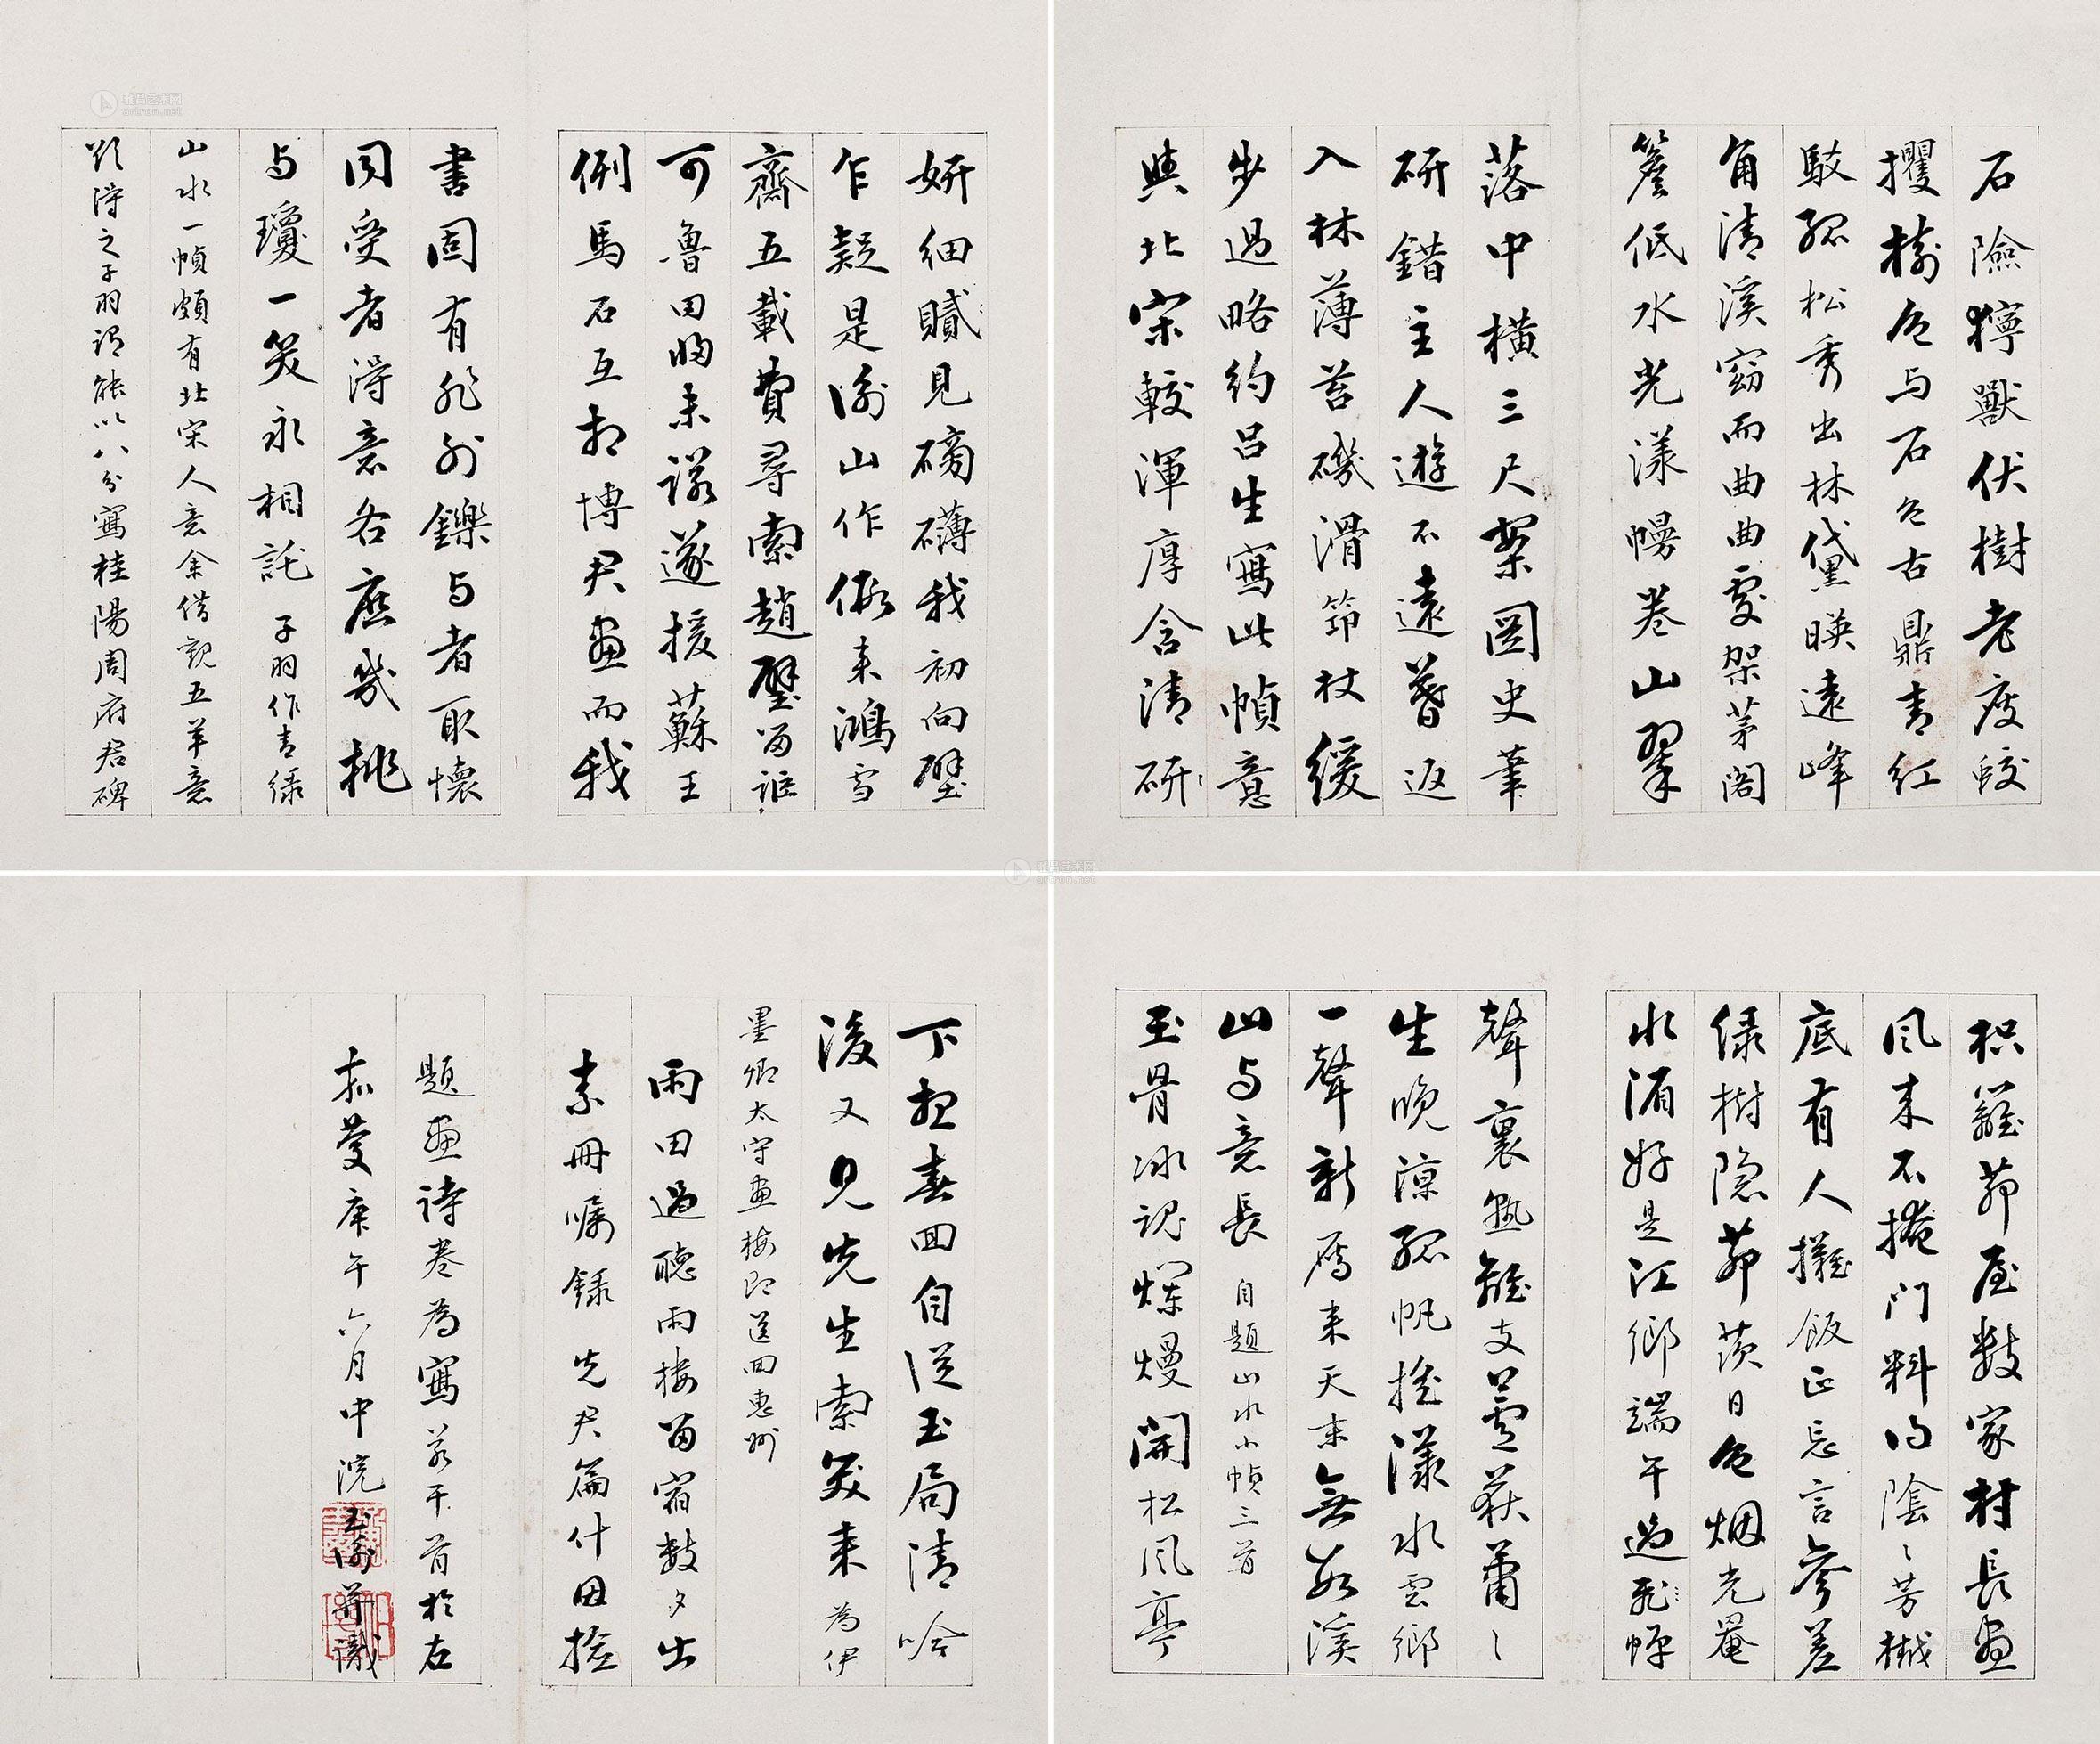 石險獰獸伏樹老瘦蛟
攫樹色与石色古鼎青紅
駁孤松秀出林黛暎遠峰
角清溪窈而曲曲處架茅閣
簷低水光漾幔卷山翠
落中橫三尺案圖史筆
研錯主人遊不遠暮返
入林薄苔磯滑筇杖緩
步過略約呂生寫此幀意
與北宋較渾厚含清研
妍細賦見磅礴我初向壁
乍疑是衡山作假来鴻雪
齋五載費尋索趙璧留誑
可魯田歸未諾遂援蘇王
例馬石互相博君畫而我
書固有非外鑠与者取懷
同受者得意各庶我桃
与瓊一笑永相託 子羽作青綠
山水一幀頗有北宋人意余借觀五年意
欲得之子羽謂能以八分寫桂陽周府君碑
枳籬茆屋數家村長晝
風来不掩門料得陰〻芳樾
底有人攤飯正忘言參差
綠樹隱茆茨日色烟光罨
水湄好是江鄉端午過
聲裏熟鱸支蘆荻蕭〻
生晚涼孤帆搖漾水雲鄉
一聲新雁来天末無數溪
山与意長 自題山水小幀三首
玉骨冰魂爛熳開松風亭
下抱春回自從玉局清吟
後又見先生索笑来 為伊
墨卿太守畫梅即送回惠州
雨田過聽雨樓留宿數夕出
素冊囑錄先君篇什因撿
題畫詩卷為寫若干首於左
庚午六月中浣玉衡并識